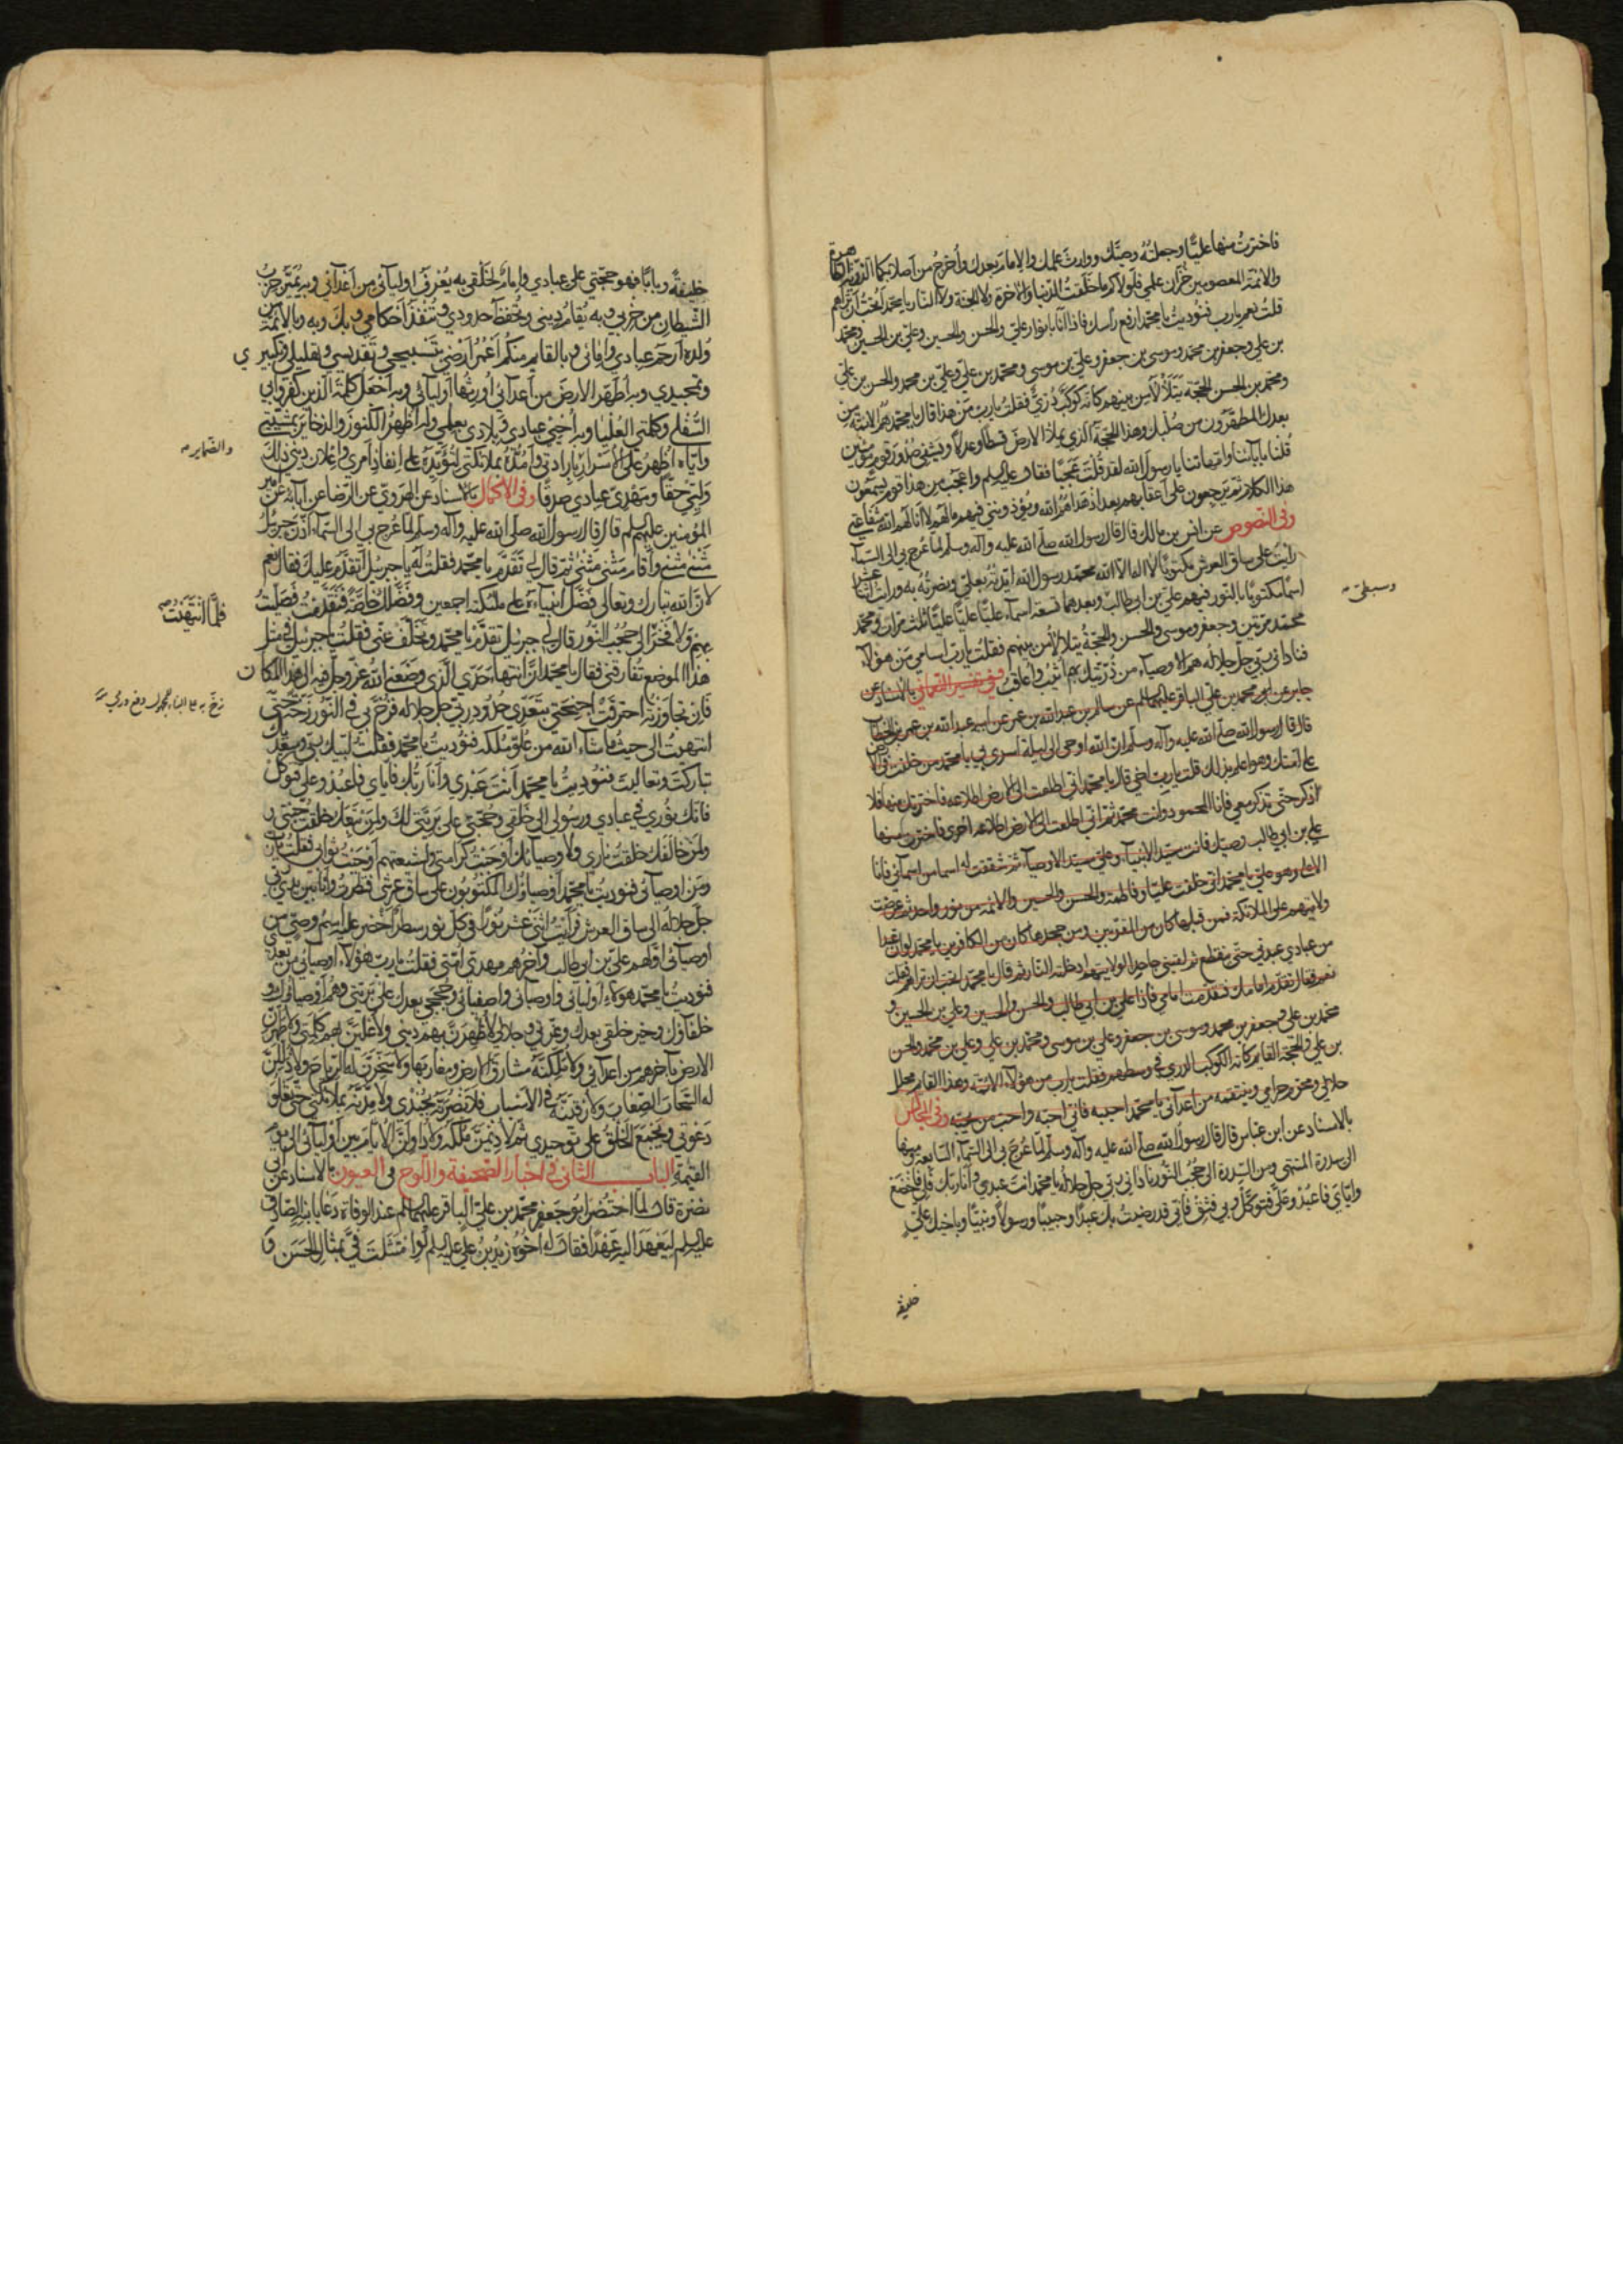 فاخترت منها عليّا وجعلته وصيّك ووارث علمك والامام بعدك واخرج من اصلابكما الذرّية الطاهرة
والائمّة المعصومين خزّان علمي فلولاكم ما خلقت الدّنيا والآخرة ولا الجنّة ولا النّار يا محمّد اتحبّ ان تراهم
قلت نعم يا ربّ فنوديت يا محمّد ارفع رأسك فرفعت رأسي فاذا انا بانوار عليّ والحسن والحسين وعليّ بن الحسين ومحمّد
بن علي وجعفر بن محمّد وموسى بن جعفر وعليّ بن موسى ومحمّد بن علي وعليّ بن محمد والحسن بن عليّ
ومحمّد بن الحسن الحجّة يتلألأ من بينهم كانّه كوكب درّيّ فقلت يا ربّ من هذا قال يا محمّد هم الائمّة من
بعدك المطهّرون من صلبك وهذا الحجّة الّذي يملأ الارض قسطا وعدلا ويشفي صدور قوم مؤمنين
قلنا بآبائنا وامّهاتنا يا رسول الله لقد قلت عجبا فقال عليه السلم واعجب من هذا قوم يسمعون
هذا الكلام ثم يرجعون على اعقابهم بعد اذ هداهم الله ويؤذونني فيهم مالهم لا انالهم الله شفاعتي
وفي النصوص عن انس بن مالك قال قال رسول الله صلّى الله عليه وآله وسلم لمّا عرج بي الى السّماء
رأيت على ساق العرش مكتوبا لا اله الّا الله محمّد رسول الله ايّدته بعليّ ونصرته به ورأيت اثنا عشر
اسما مكتوبا بالنّور فيهم عليّ بن ابي طالب وبعدهما تسعة اسماء عليّا عليّا عليّا ثلث مرّات ومحمّد
محمّد مرّتين وجعفر وموسى والحسن والحجّة يتلألأ من بينهم فقلت يا ربّ اسامي من هؤلاء
فناداني ربّي جلّ جلاله هم الاوصياء من ذرّيتك بهم اثيب واعاقب وفي تفسير النعماني بالاسناد عن
جابر عن ابي محمّد بن علي الباقر عليهما السلم عن سالم بن عبد الله بن عمر عن ابيه عبد الله بن عمر بن الخطاب
قال قال رسول الله صلّى الله عليه وآله وسلّم انّ الله اوحى الى ليلة اسري بي يا محمد من خلفت في الارض
على امّتك وهو اعلم بذلك قلت يا ربّ اخي قال يا محمّد انّي اطلعت الى الارض اطلاعة فاخترتك منها فلا
اذكر حتّى تذكر معي فانا المحمود وانت محمّد ثم انّي اطلعت الى الارض اطلاعة اخرى فاخترت منها
علي بن ابي طالب وصيك فانت سيّد الانبياء وعليّ سيّد الاوصياء ثم شققت له اسما من اسمائي فانا
الاعلى وهو عليّ يا محمّد انّي خلقت عليّا وفاطمة والحسن والحسين والائمّة من نور واحد ثم عرضت
ولايتهم على الملائكة فمن قبلها كان من المقرّبين ومن جحدها كان من الكافرين يا محمّد لو ان عبدا
من عبادي عبدني حتّى ينقطع ثم لقيني جاحدا لولايتهم ادخلته النّار ثم قال يا محمّد اتحبّ ان تراهم فقلت
نعم فقال تقدّم امامك فتقدّمت امامي فاذا علي بن ابي طالب والحسن والحسين وعلي بن الحسين و
محمّد بن علي وجعفر بن محمد وموسى بن جعفر وعلي بن موسى ومحمّد بن علي وعلي بن محمد والحسن
بن علي والحجّة القايم كانّه الكوكب الدرّي في وسطهم فقلت يا ربّ من هؤلاء قال الائمّة وهذا القايم محلل
حلالي ومحرّم حرامي وينتقم من اعدائي يا محمّد احببه فانّي احبّه واحبّ من يحبّه وفي المجالس
بالاسناد عن ابن عبّاس قال قال رسول الله صلّى الله عليه وآله وسلّم لمّا عرج بي الى السّماء السّابعة ومنها
الى سدرة المنتهى ومن السّدرة الى حجب النّور ناداني ربّي جلّ جلاله يا محمّد انت عبدي وانا ربّك فلي فاخضع
وايّاي فاعبد وعليّ فتوكّل وبي فثق فانّي قد رضيت بك عبدا وحبيبا ورسولا ونبيّا وباخيك عليّ
خليفة
وسبطيّ
خليفة وبابا فهو حجّتي على عبادي وامام لخلقي به يعرف اوليائي من اعدائي وبه يميّز حزب
الشّيطان من حزبي وبه يقام ديني ويحفظ حدودي وتنفذ احكامي وبك وبه وبالائمّة من
ولده ارحم عبادي وامائي وبالقايم منكم اعمر ارضي بتسبيحي وتقديسي وتهليلي وتكبيري
وتمجيدي وبه اطهّر الارض من اعدائي واورثها اوليائي وبه اجعل كلمة الّذين كفروا بي
السّفلى وكلمتي العليا وبه احيي عبادي وبلادي بعلمي وله اظهر الكنوز والذخاير بمشيّتي
وايّاه اظهر على الاسرار بارادتي وامدّه بملائكتي لتؤيّده على انفاذ امري واعلان ديني ذلك
وليّي حقّا ومهديّ عبادي صدقا وفي الاكمال بالاسناد عن الهروي عن الرّضا عن آبائه عن امير
المؤمنين عليهم السلم قال قال رسول الله صلّى الله عليه وآله وسلّم لمّا عرج بي الى السّماء اذّن جبرئيل
مثنى مثنى واقام مثنى مثنى ثم قال لي تقدّم يا محمّد فقلت له يا جبرئيل اتقدّم عليك فقال نعم
لانّ الله تبارك وتعالى فضّل انبياءه على ملئكته اجمعين وفضّلك خاصّة فتقدّمت فصلّيت
بهم ولا فخر الى حجب النّور قال لي جبرئيل تقدّم يا محمّد وتخلّف عنّي فقلت يا جبرئيل في مثل
هذا الموضع تفارقني فقال يا محمّد انّ انتهاء حدّي الّذي وضعني الله عزّ وجلّ فيه الى هذا المكان
فان تجاوزته احترقت اجنحتي بتعدّي حدود ربّي جلّ جلاله فزخّ بي في النّور زخّة حتّى
انتهيت الى حيث ما شاء الله من علوّ ملكه فنوديت يا محمّد فقلت لبّيك ربّي وسعديك
تباركت وتعاليت فنوديت يا محمّد انت عبدي وانا ربّك فايّاي فاعبد وعليّ فتوكّل
فانّك نوري في عبادي ورسولي الى خلقي وحجّتي على بريّتي لك ولمن تبعك خلقت جنّتي و
ولمن خالفك خلقت ناري ولاوصيائك اوجبت كرامتي ولشيعتهم اوجبت ثوابي فقلت يا ربّ
ومن اوصيائي فنوديت يا محمّد اوصياؤك المكتوبون على ساق عرشي فنظرت وانا بين يدي ربّي
جلّ جلاله الى ساق العرش فرأيت اثنى عشر نورا في كل نور سطر اخضر عليه اسم وصيّ من
اوصيائي اوّلهم عليّ بن ابي طالب وآخرهم مهديّ امّتي فقلت يا ربّ هؤلاء اوصيائي من بعدي
فنوديت يا محمّد هؤلاء اوليائي واوصيائي واصفيائي وحججي بعدك على بريّتي وهم اوصياؤك و
خلفاؤك وخير خلقي بعدك وعزّتي وجلالي لاظهرنّ بهم ديني ولاعلينّ بهم كلمتي ولاطهّرنّ
الارض بآخرهم من اعدائي ولاملّكنّه مشارق الارض ومغاربها ولاسخّرنّ له الرّياح ولاذلّلنّ
له السّحاب الصّعاب ولارقّينّه في الاسباب فلانصرنّه بجندي ولامدّنّه بملائكتي حتّى تعلو
دعوتي ويجمع الخلق على توحيدي ثم لاديمنّ ملكه ولاداولنّ الايّام بين اوليائي الى يوم
القيمة الباب الثاني في اخبار الصّحيفة واللّوح في العيون بالاسناد عن ابي
نضرة قال لمّا احتضر ابو جعفر محمّد بن علي الباقر عليهما السلم عند الوفاة دعا بابنه الصّادق
عليه السلم ليعهد اليه عهدا فقال له اخوه زيد بن علي عليه السلم لو امتثلت فيّ بمثال الحسن و
والضماير
فلمّا انتهيت
زخّ به على البناء للمجهول دفع ورمي